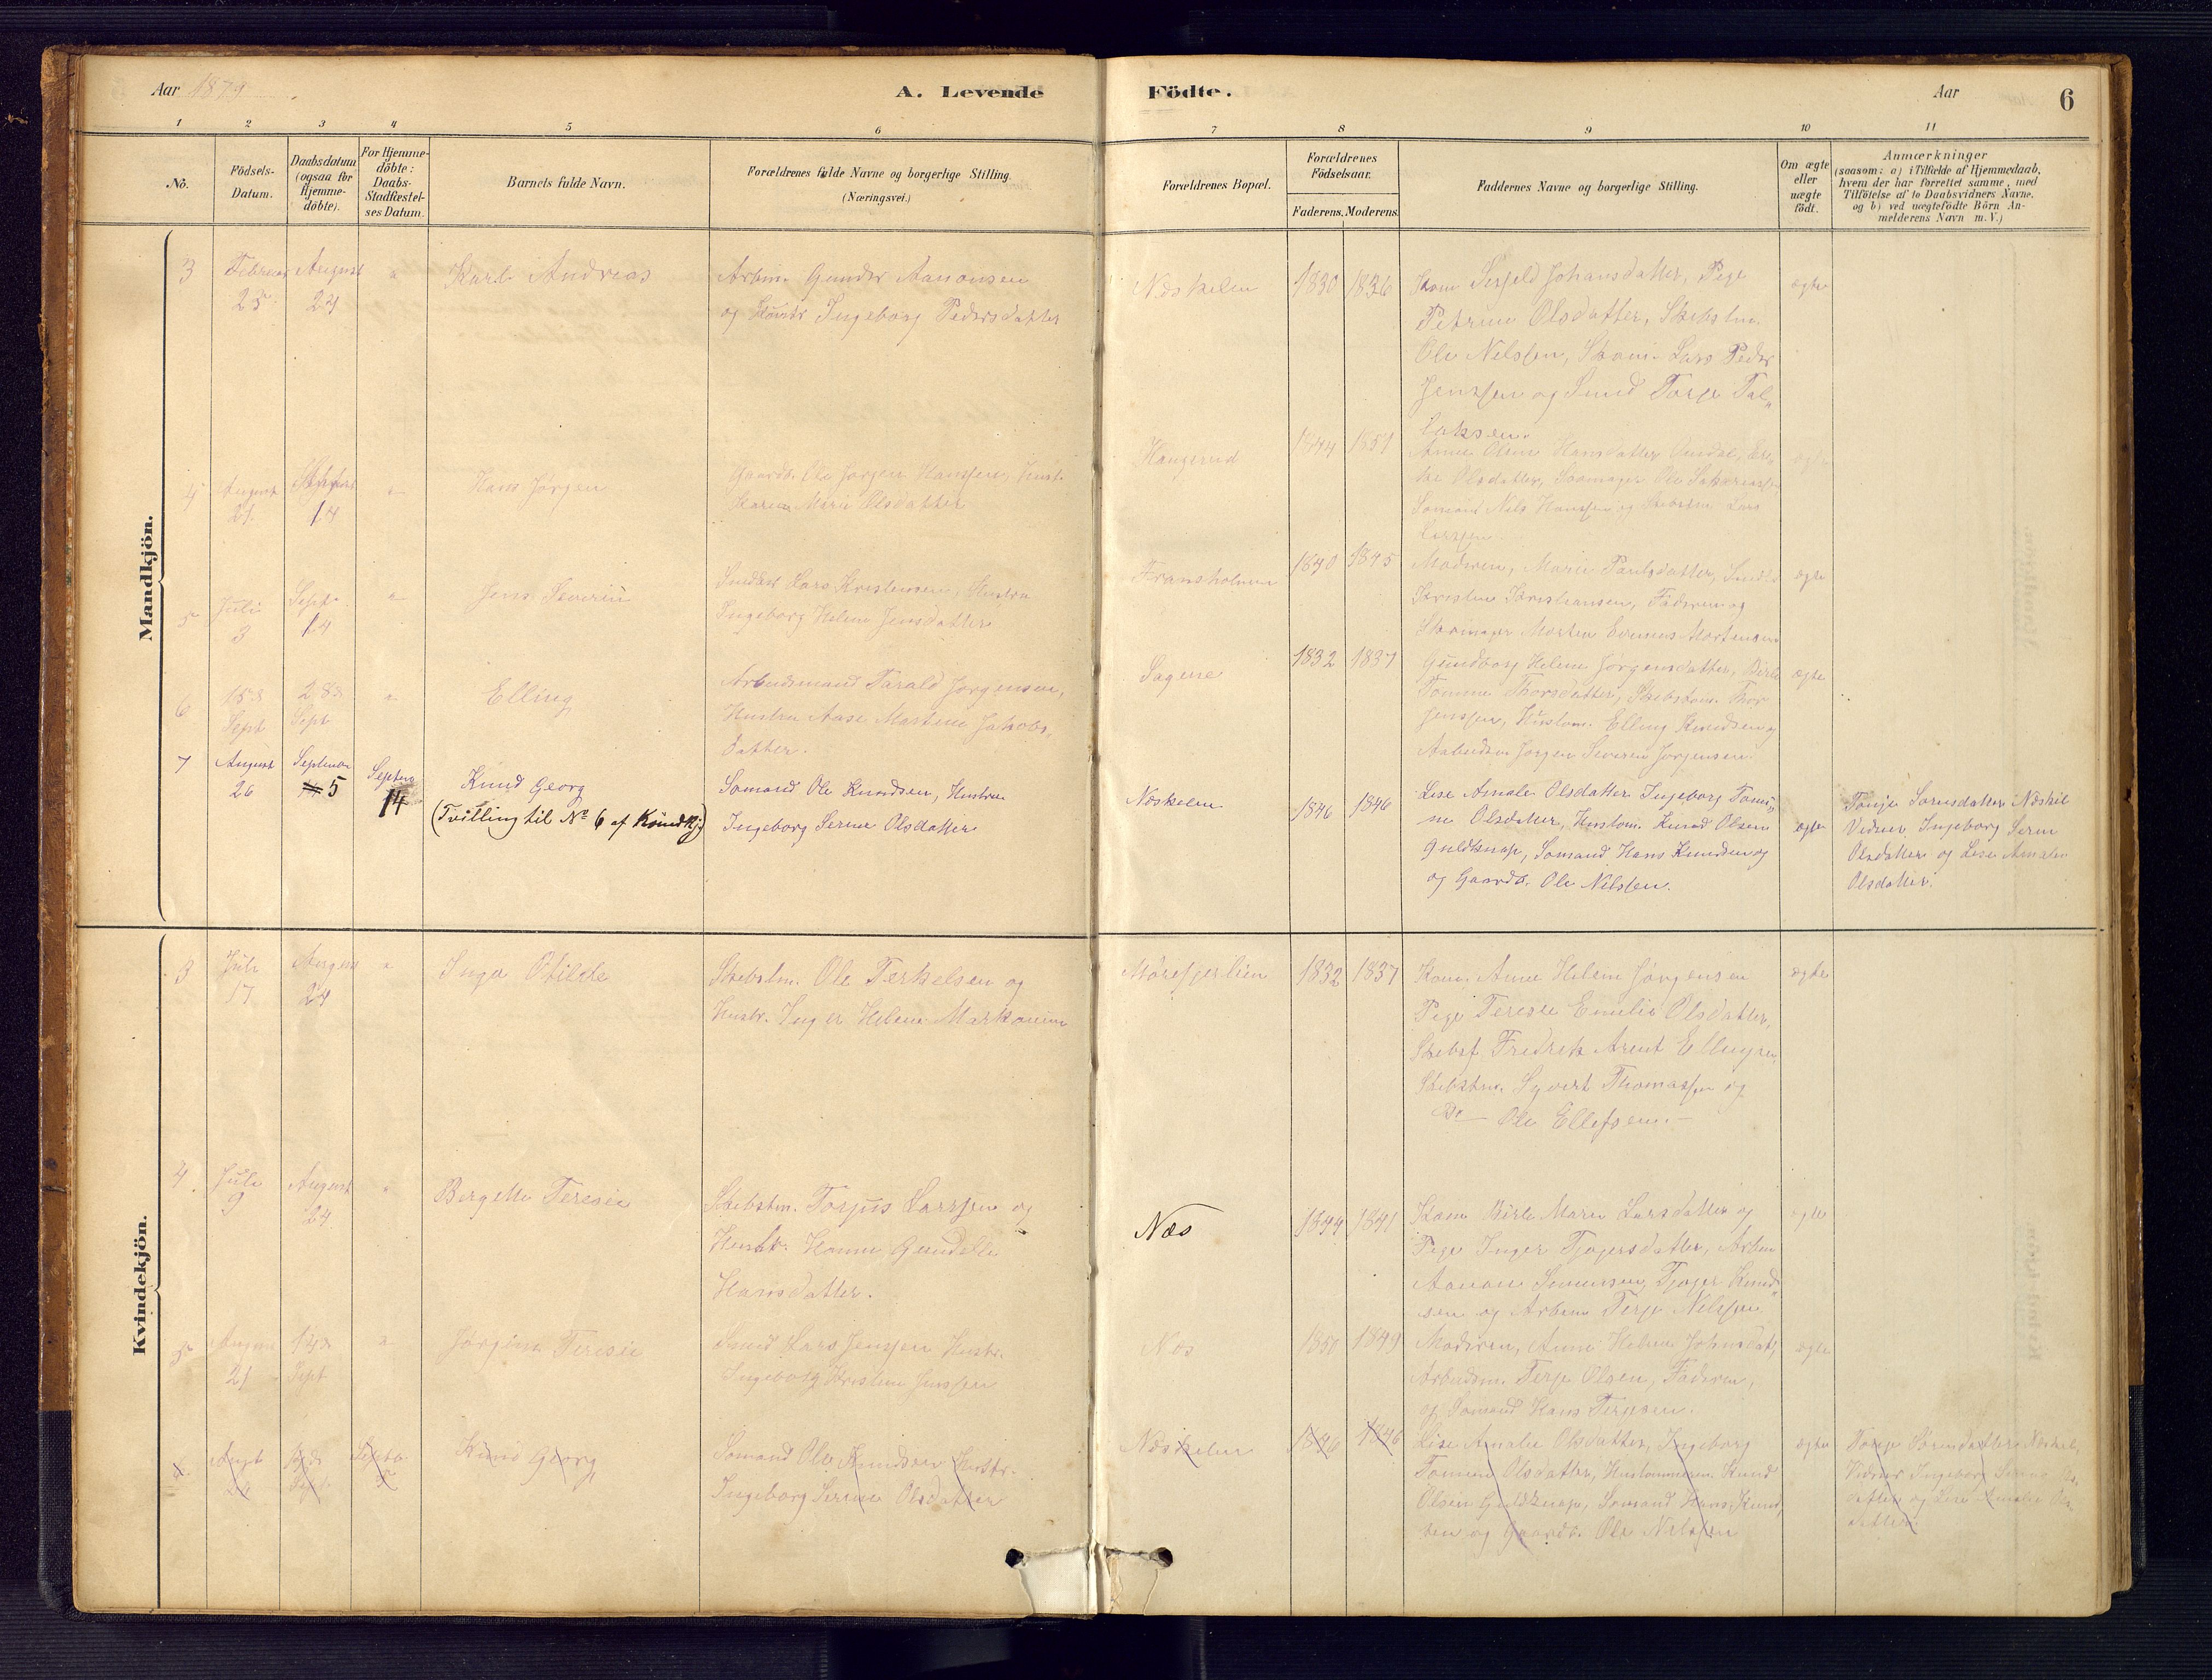 Aar 1879
A. Levende
Födte.
Aar
6
1 2 3 4 5 6
7 8 9 10 11
No.
Födsels-Datum.
Daabsdatum (ogsaa for Hjemme-döbte).
For Hjemme-döbte: Daabs-Stadfæstel-ses Datum.
Barnets fulde Navn.
Forældrenes fulde Navne og borgerlige Stilling. (Næringsvei.)
Forældrenes Bopæl.
Forældrenes Födselsaar.
Faderens. Moderens.
Faddernes Navne og borgerlige Stilling.
Om ægte eller uægte födt.
Anmærkninger
(saasom: a) i Tilfælde af Hjemmedaab,
hvem der har forrettet samme, med
Tilföielse af to Daabsvidners Navne.
og b) ved uægtefödte Börn An-
melderens Navn m. V.)
Mandkjön.
3 Februar 25 August 24 " Karl Andreas
Arbm. Gunder Aanonsen
og Hustr Ingeborg Pedersdatter
Næskelen 1830 1836
Kone Johansdatter, Pige
Petrine Olsdatter, Skibstm.
Ole Nelssen, Lars Peder
Jenssen og Smed Terje Tal-
laksen.
ægte
4 August 21 14 " Hans Jørgen
Gaardb. Ole Jørgen Hanssen, Hust.
Karen Marie Olsdatter
Haugerud 1844 1851
Anne Olene Hansdatter
Olsdatter, Ole
Sømand Nels Hanssen og Skibstm. Lars
Larssen.
ægte
5 Juli 3 Sept. 14 " Jens Severin
Lars Kristensen, Hustru
Ingeborg Helene Jensdatter
Fransholmen 1840 1845
Moderen, Marie Paulsdatter,
Kristen Kristiansen, Faderen og
Morten Mortensen
ægte
6 18de Sept 28de Sept " Elling
Arbeidsmand Tarald Jørgensen,
Hustru Aase Martine Jakobs-
datter.
Sagene 1832 1837
Gundborg Helene Jørgensdatter, Birte
Tomine Thorsdatter, Skibstm. Thor
Jenssen, Hustom. Elling Knudsen og
Arbeidsm Jørgen Severin Jørgensen.
ægte
7 August 26 September 5 Septem 14 Knud Georg
(Tvilling til No 6 af Kvindkj)
Sømand Ole Knudsen, Hustru
Ingeborg Serine Olsdatter
Næskelen 1846 1846
Lise Amalie Olsdatter Ingeborg Tomi-
ne Olsdatter, Hustom. Knud Olsen
Guldknap, Sømand Hans Knudsen og
og Gaardb. Ole Nilssen.
ægte
Tonje Sørensdatter Næskil
Vidner, Ingeborg Serine
Olsdatter og Lise Amalie
Olsdatter.
Kvindekjön.
3 Juli 17 August 24 " Inga Otilde
Skibstm. Ole Terkelsen og
Hustr. Inger Helene
1832 1837
Kone Anne Helene Jørgensen
Pige Teresie Emilie Olsdatter,
Skibsf. Fredrek Arent
Skibstm. Syvert Thomassen og
Do — Ole Ellefsen. —
ægte
4. Juli 9 August 24. " Bergette Teresie
Skibstm. Torjus Larssen og
Hustr. Hanne Gundelle
Hansdatter.
Næs 1844 1841
Kone Birte Marie Larsdatter og
Pige Inger Tjøgersdatter, Arbm
Aanon Tjøger Knud-
sen og Arbm Terje Nelssen.
ægte
5 August 21 14de Sept " Jørgine Teresie
Smed Lars Jenssen Hustr.
Ingeborg Kristine Jenssen
Næs 1850 1849
Moderen, Anne Helene Johnsdat,
Arbeidsm. Terje Olsen, Faderen,
og Sømand Hans Terjesen.
ægte
6. Augt 26 Sept. Septbr 5 Knud Georg
Sømand Ole Knudsen Hustr.
Ingeborg Serine Olsdatter
Næskelen 1846 1846
Lise Amalie Olsdatter, Ingeborg
Tomine Olsdatter, Hustommeren Knud
Olsen Guldknap, Sømand Hans Knud-
sen og Gaardb. Ole Nelssen
ægte
Tonje Sørensdatter Næskil,
Vidner Ingeborg Serine Ols-
datter og Lise Amalie Ols-
datter